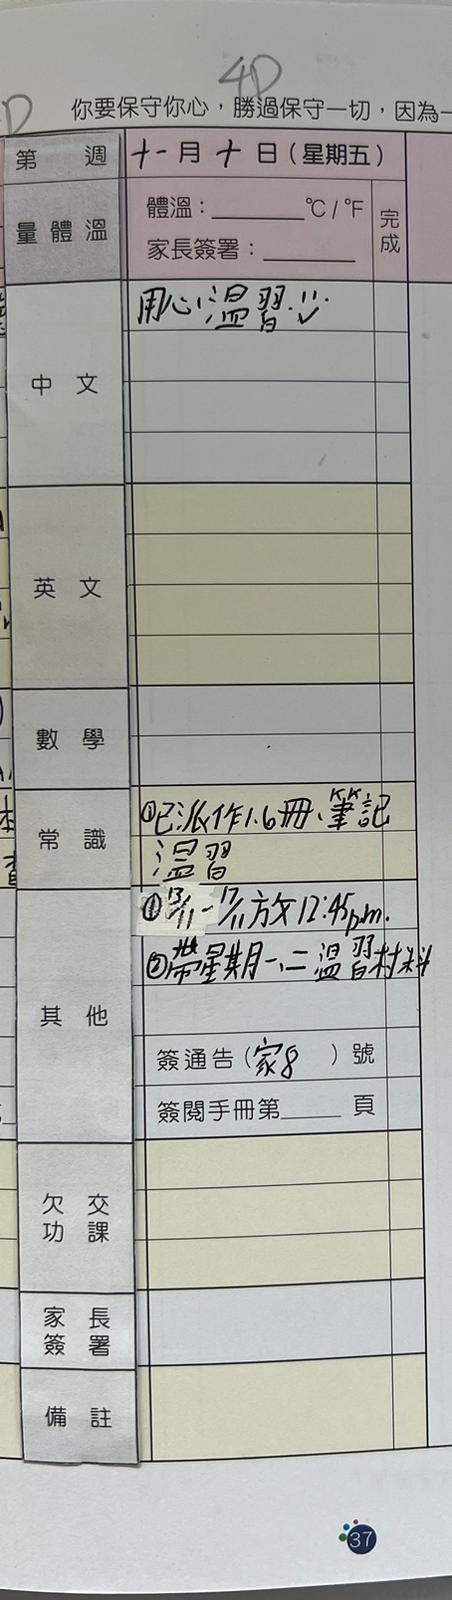 4D
你要保守你心，勝過保守一切，因為一
第 週 十一月十日(星期五)
量體溫 體溫：______℃/℉ 完成
家長簽署：______
中文 用心溫習
英文
數學
常識 ①已派作1.6冊、筆記
溫習
其他 ①13/11-17/11放12:45p.m.
②帶星期一、二溫習材料
簽通告(家8 )號
簽閱手冊第____頁
欠交功課
家長簽署
備註
37